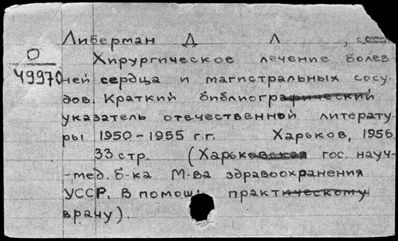 Либерман Д Л , сост.
О
49970
Хирургическое лечение болез-
ней сердца и магистральных сосу-
дов. Краткий библиографический
указатель отечественной литерату-
ры 1950-1955 г.г. Харьков, 1956
33 стр. (Харьковская гос. науч-
-мед. б-ка М-ва здравоохранения
УССР. В помощь практическому
врачу).